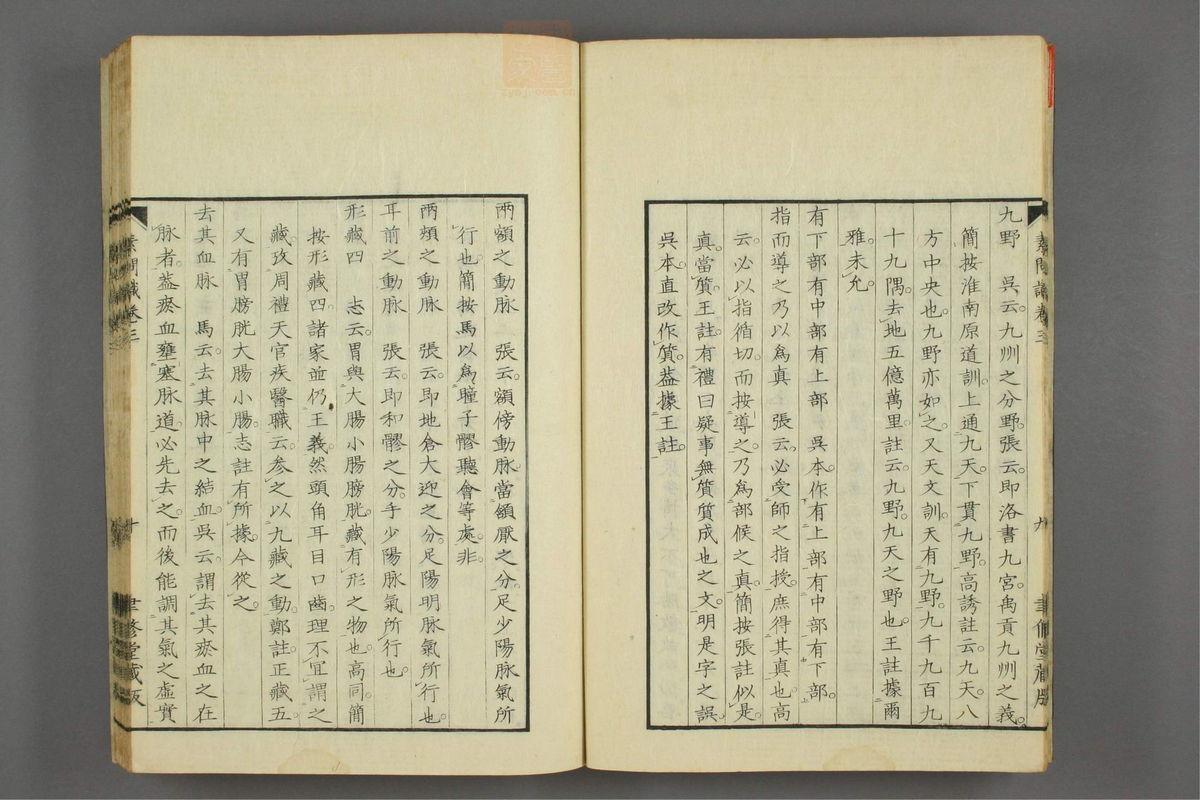 九野 吳云。九州之分野。張云。即洛書九宮。禹貢九州之義。
簡按淮南原道訓。上通九天。下貫九野。高誘註云。九天。八
方中央也。九野亦如之。又天文訓。天有九野。九千九百九
十九隅。去地五億萬里。註云。九野。九天之野也。王註據爾
雅。未允。
有下部有中部有上部 吳本。作有上部有中部有下部。
指而導之乃以為真 張云。必受師之指授。庶得其真也。高
云。必以指循切。而按導之。乃為部候之真。簡按張註似是。
真。當質。王註。有禮曰疑事無質質成也之文。明是字之誤。
吳本直改作質。葢據王註。
素問識卷三
九
聿修堂藏版
兩額之動脉 張云。額傍動脉。當頷厭之分。足少陽脉氣所
行也。簡按馬以為瞳子髎聽會等處。非。
兩頰之動脉 張云。即地倉大迎之分。足陽明脉氣所行也。
耳前之動脉 張云。即和髎之分。手少陽脉氣所行也。
形藏四 志云。胃與大腸小腸膀胱。藏有形之物也。高同。簡
按形藏四。諸家並仍王義。然頭角耳目口齒。理不宜謂之
藏。攷周禮天官疾醫職云。参之以九藏之動。鄭註。正藏五。
又有胃膀胱大腸小腸。志註有所據。今從之。
去其血脉 馬云。去其脉中之結血。吳云。謂去其瘀血之在
脉者。葢瘀血壅塞脉道。必先去之。而後能調其氣之虛實
素問識卷三
十
聿修堂藏版